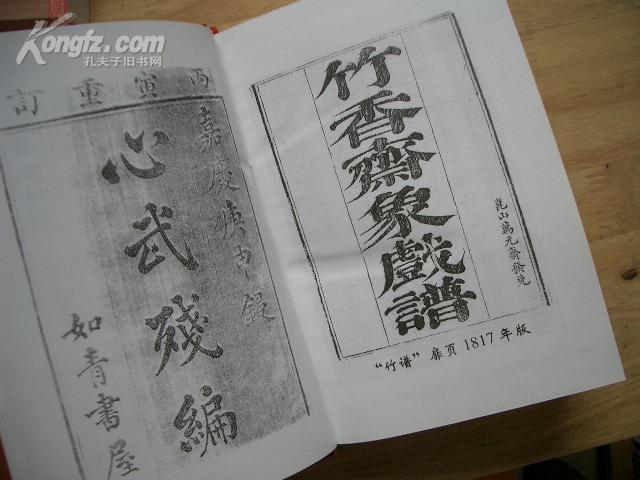 Kongfz.com
孔夫子旧书网
丙寅重訂
嘉慶庚申鋟
心武殘編
如青書屋
崑山萬元齋發兌
竹香齋象戲譜
“竹谱” 扉页 1817 年版